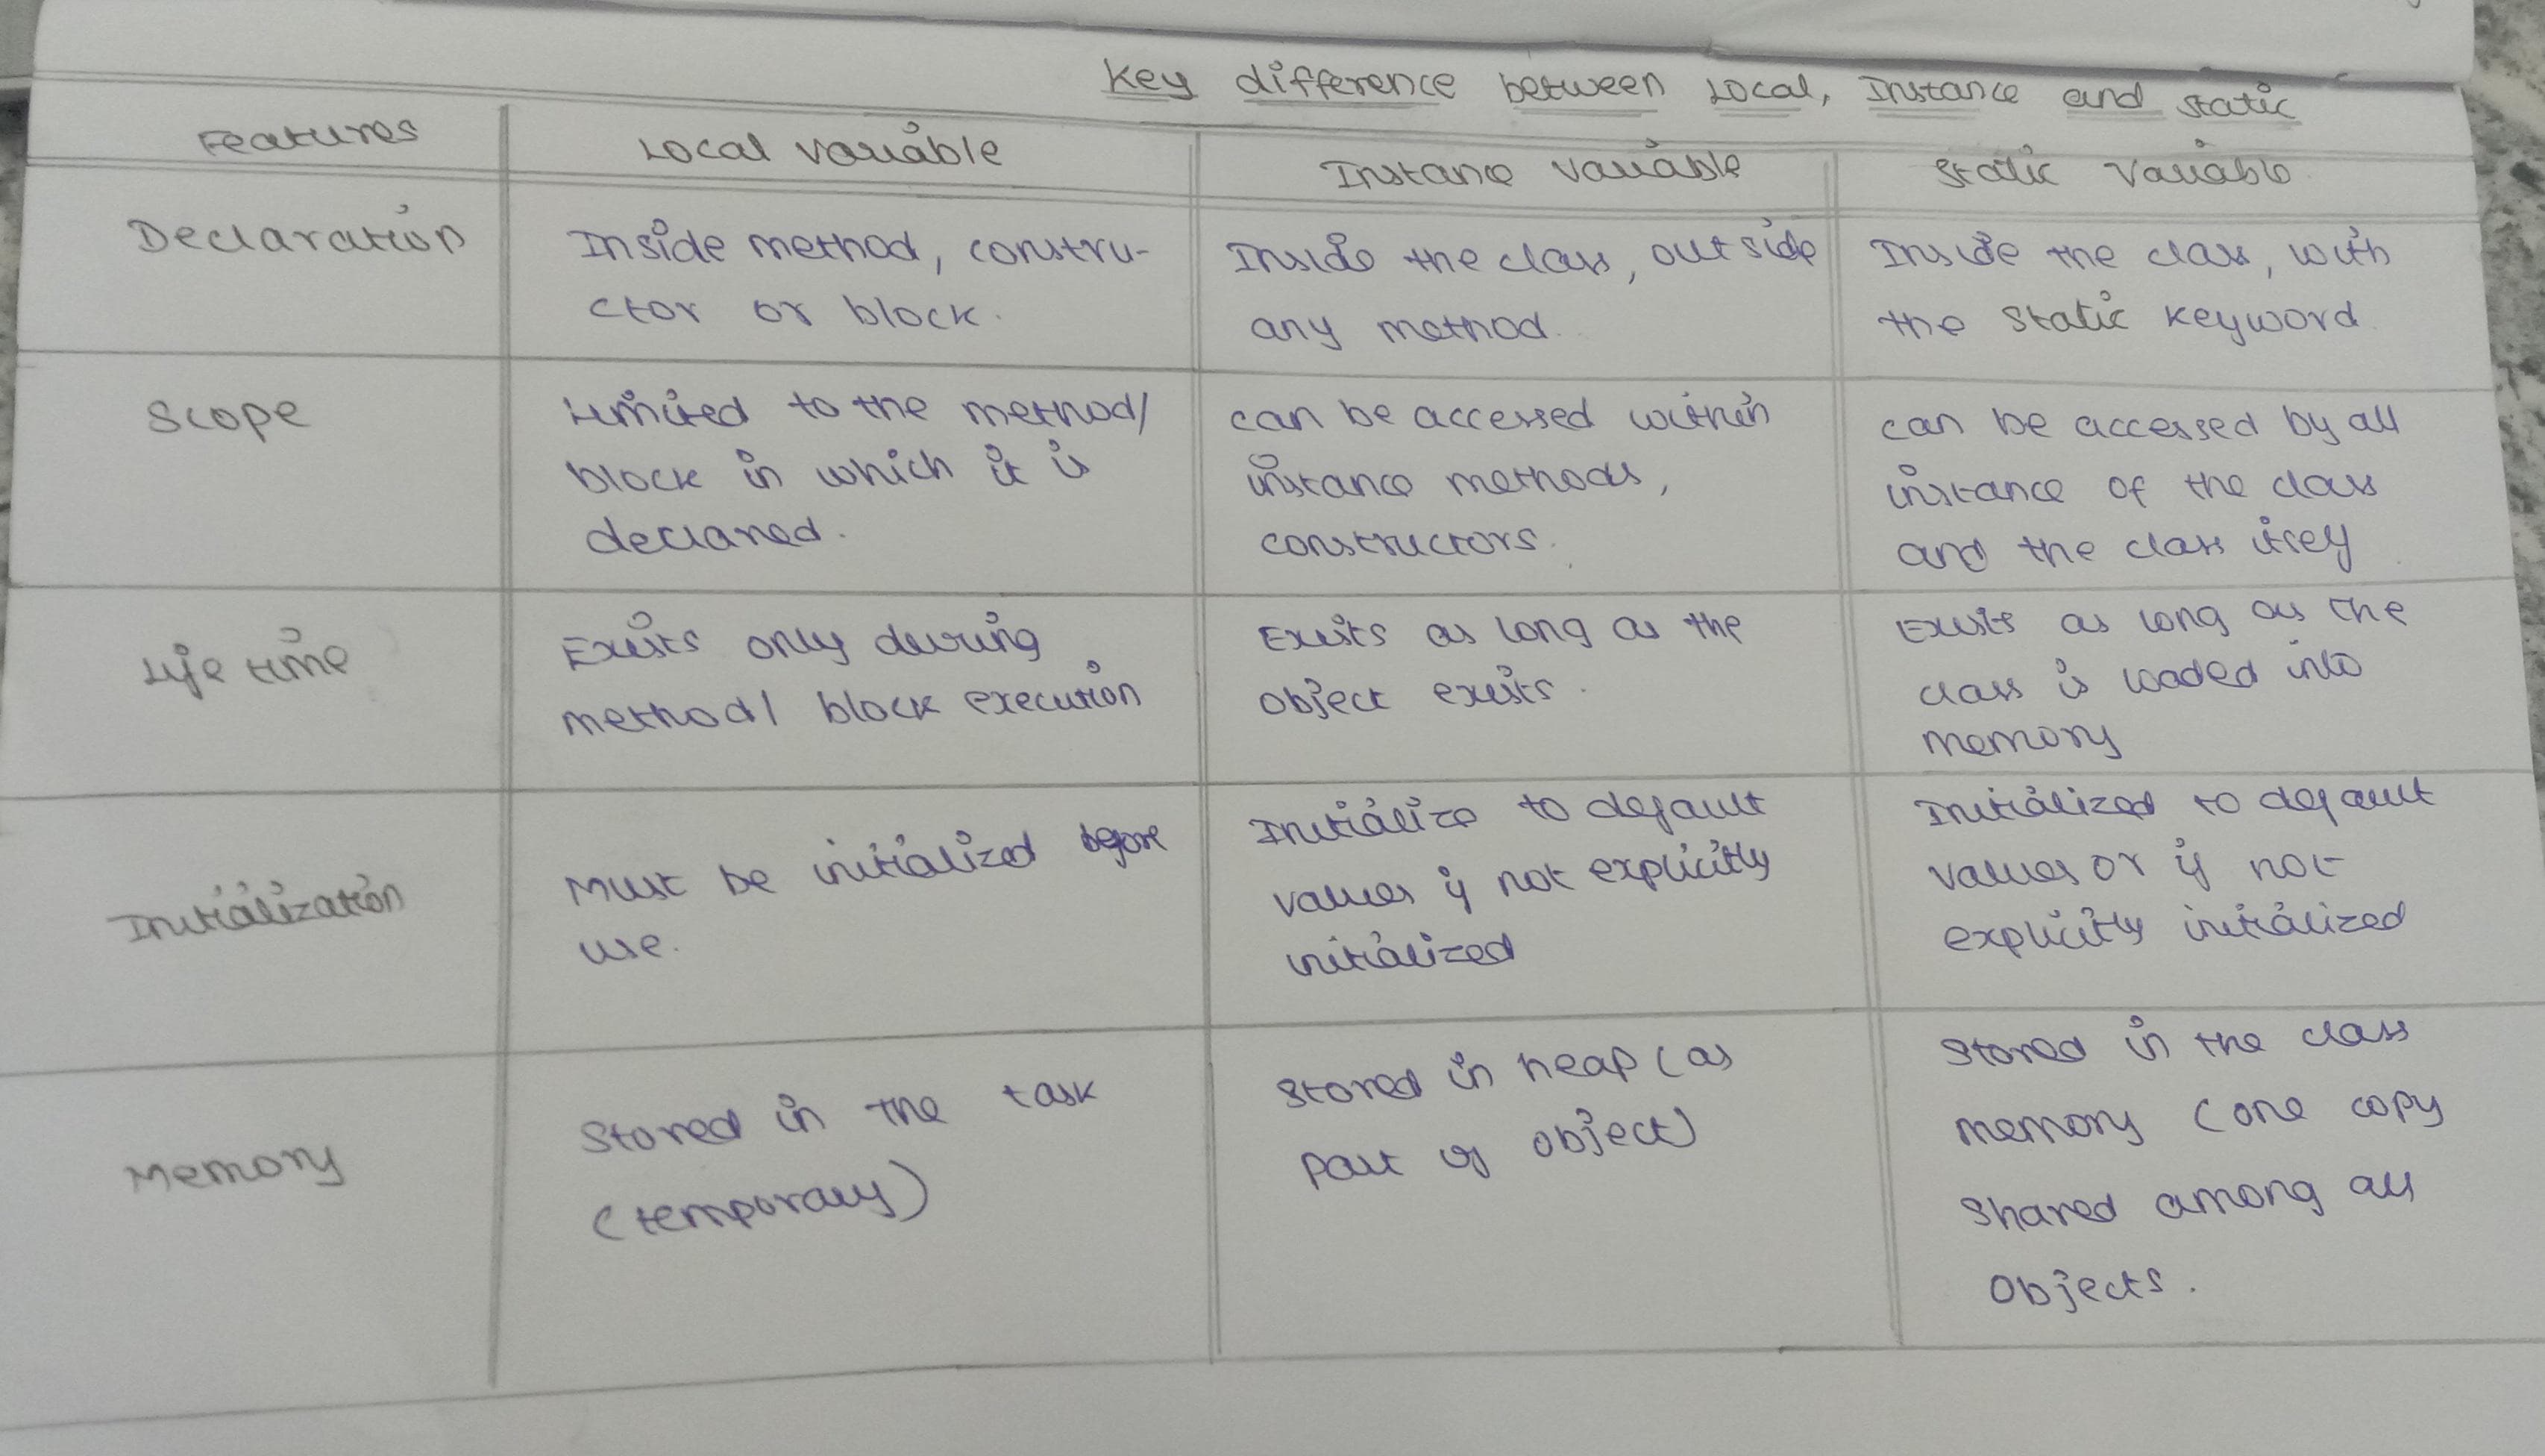 Key difference between Local, Instance and static
Features
Local variable
Instance variable
Static Variable
Declaration
Inside method, constru-
ctor or block.
Inside the class, outside
any method.
Inside the class, with
the static keyword
Scope
Limited to the method/
block in which it is
declared.
can be accessed within
instance methods,
constructors.
can be accessed by all
instance of the class
and the class itself
Life time
Exists only during
method/ block execution
Exists as long as the
object exists.
Exists as long as the
class is loaded into
memory
Initialization
Must be initialized before
use.
Initialize to default
values if not explicitly
initialized
Initialized to default
values or if not
explicitly initialized
Memory
Stored in the task
(temporary)
Stored in heap (as
part of object)
Stored in the class
memory (one copy
shared among all
objects.